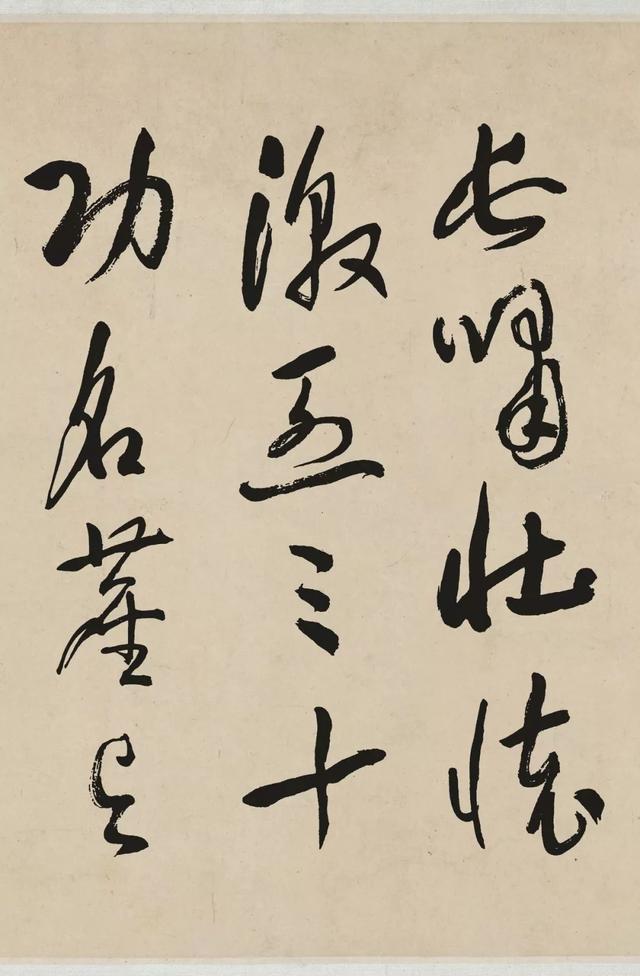 長嘯壯懷
激烈三十
功名塵與